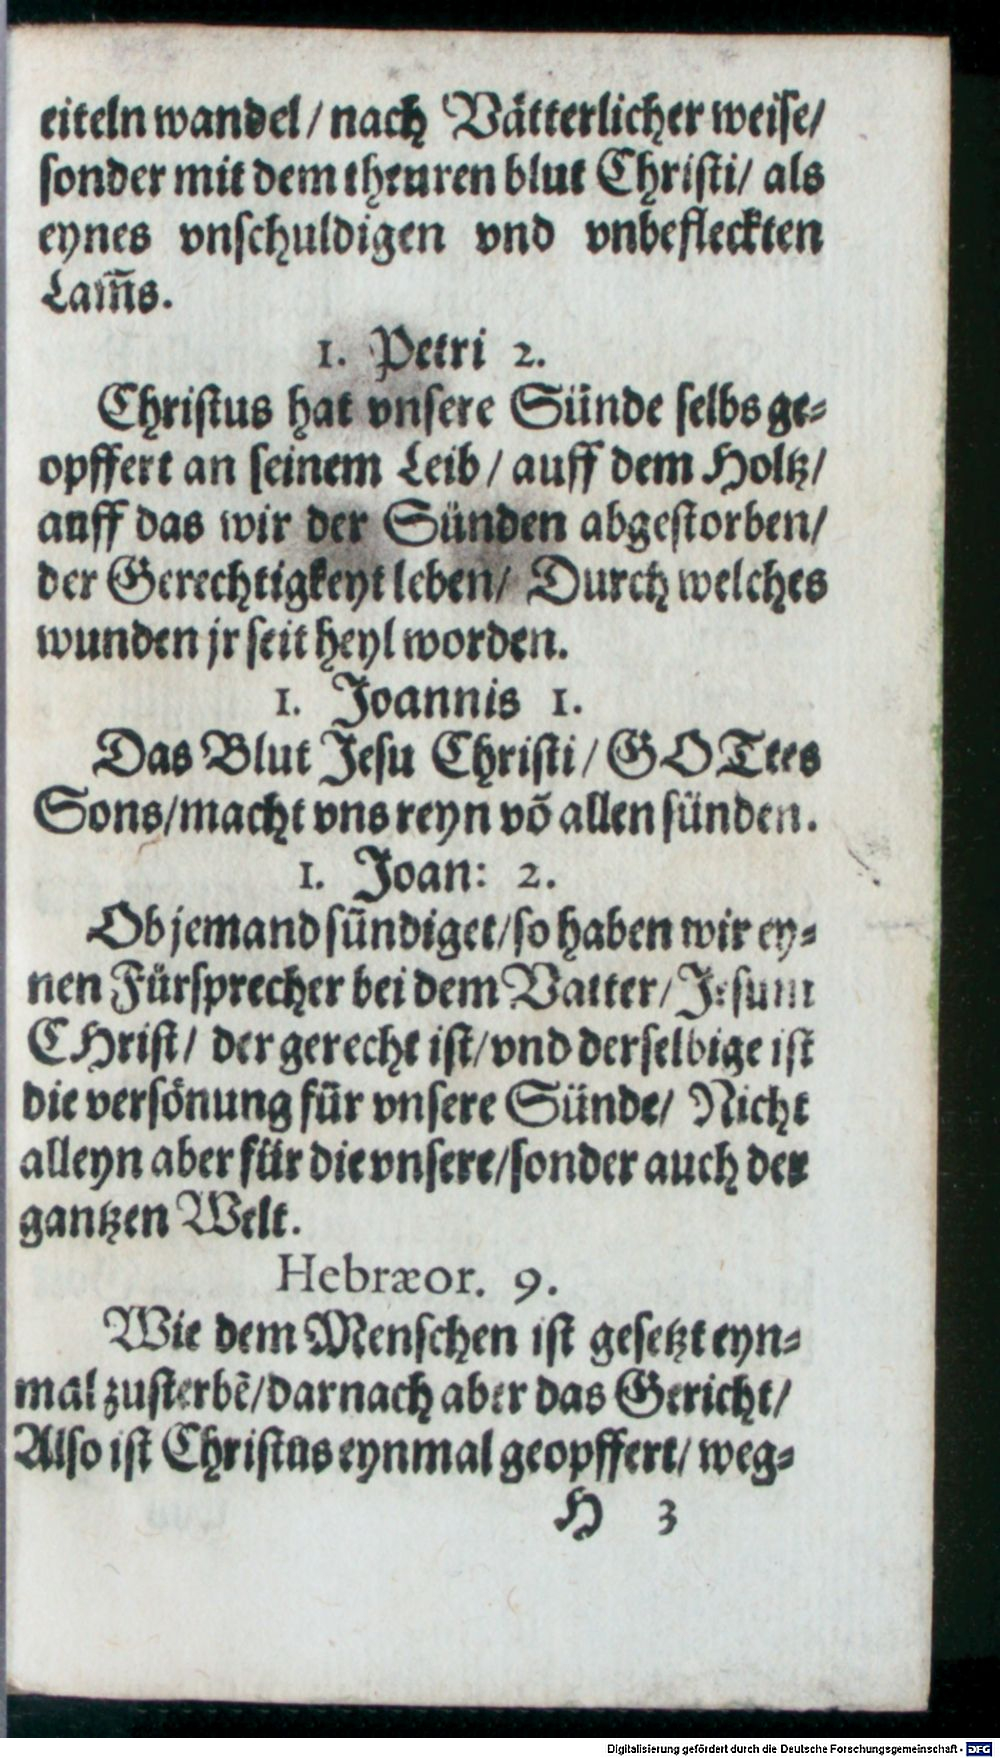 eiteln wandel / nach Vätterlicher weise /
sonder mit dem theuren blut Christi / als
eynes vnschuldigen vnd vnbefleckten
Lam̃s.
1. Petri 2.
Christus hat vnsere Sünde selbs ge-
opffert an seinem Leib / auff dem Holtz /
auff das wir der Sünden abgestorben /
der Gerechtigkeyt leben / Durch welches
wunden jr seit heyl worden.
1. Joannis 1.
Das Blut Jesu Christi / GOTtes
Sons / macht vns reyn võ allen sünden.
1. Joan: 2.
Ob jemand sündiget / so haben wir ey-
nen Fürsprecher bei dem Vatter / Jesum
CHrist / der gerecht ist / vnd derselbige ist
die versönung für vnsere Sünde / Nicht
alleyn aber für die vnsere / sonder auch der
gantzen Welt.
Hebræor. 9.
Wie dem Menschen ist gesetzt eyn-
mal zusterbẽ / darnach aber das Gericht /
Also ist Christus eynmal geopffert / weg-
H 3
Digitalisierung gefördert durch die Deutsche Forschungsgemeinschaft - DFG